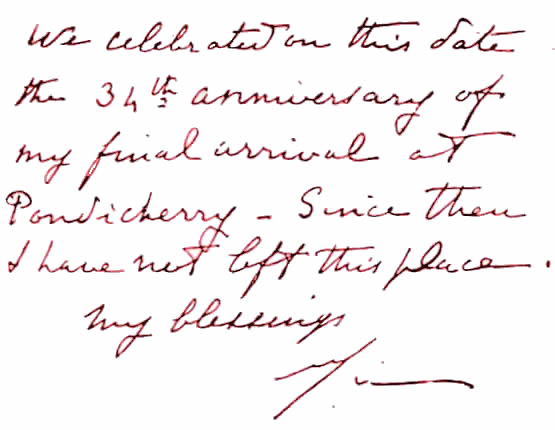 We celebrated on this date
the 34th anniversary of
my final arrival at
Pondicherry - Since then
I have not left this place.
my blessings